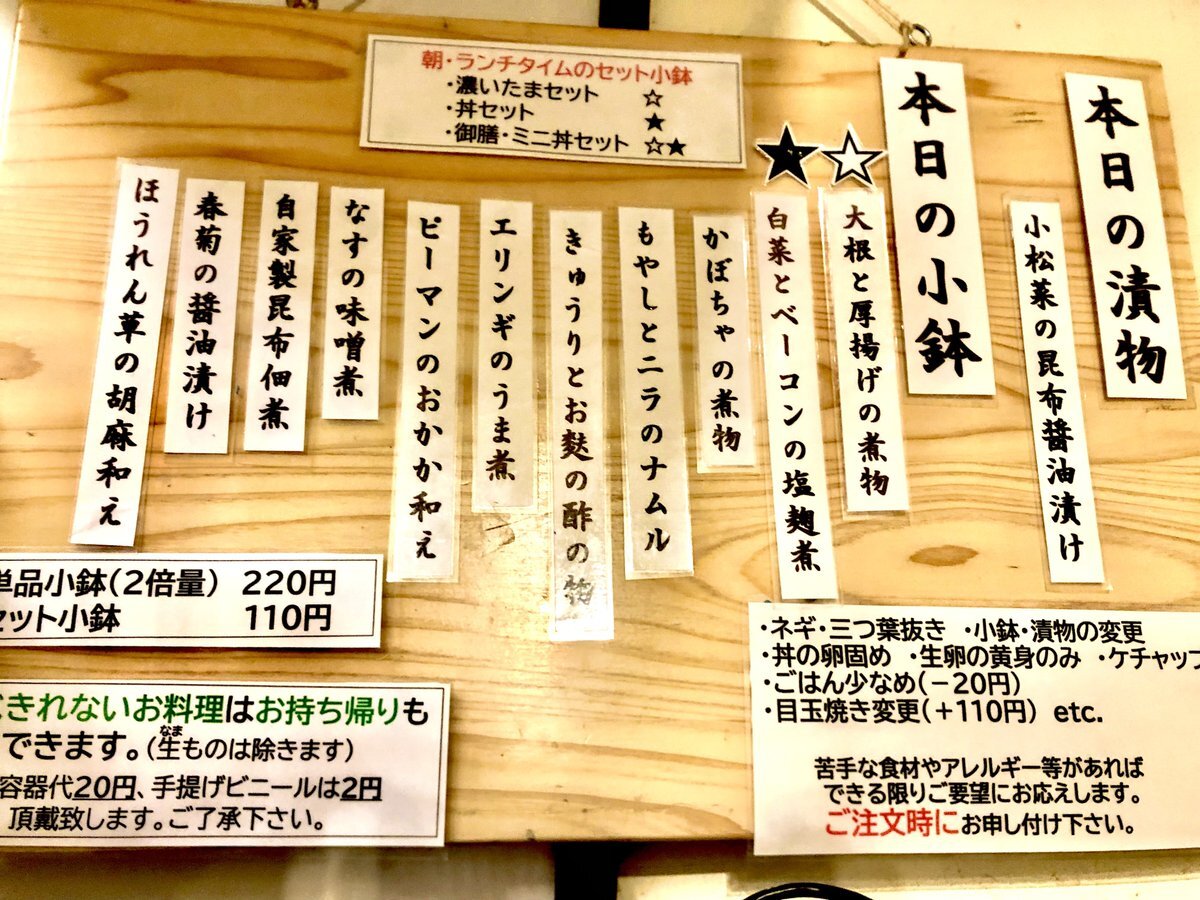 朝・ランチタイムのセット小鉢
・濃いたまセット ☆
・丼セット ★
・御膳・ミニ丼セット ☆★
本日の漬物
小松菜の昆布醤油漬け
本日の小鉢
☆
大根と厚揚げの煮物
★
白菜とベーコンの塩麹煮
かぼちゃの煮物
もやしとニラのナムル
きゅうりとお麩の酢の物
エリンギのうま煮
ピーマンのおかか和え
なすの味噌煮
自家製昆布佃煮
春菊の醤油漬け
ほうれん草の胡麻和え
単品小鉢(2倍量) 220円
セット小鉢 110円
きれないお料理はお持ち帰りも
できます。(生ものは除きます)
なま
容器代20円、手提げビニールは2円
頂戴致します。ご了承下さい。
・ネギ・三つ葉抜き ・小鉢・漬物の変更
・丼の卵固め ・生卵の黄身のみ ・ケチャップ
・ごはん少なめ(－20円)
・目玉焼き変更(＋110円) etc.
苦手な食材やアレルギー等があれば
できる限りご要望にお応えします。
ご注文時にお申し付け下さい。